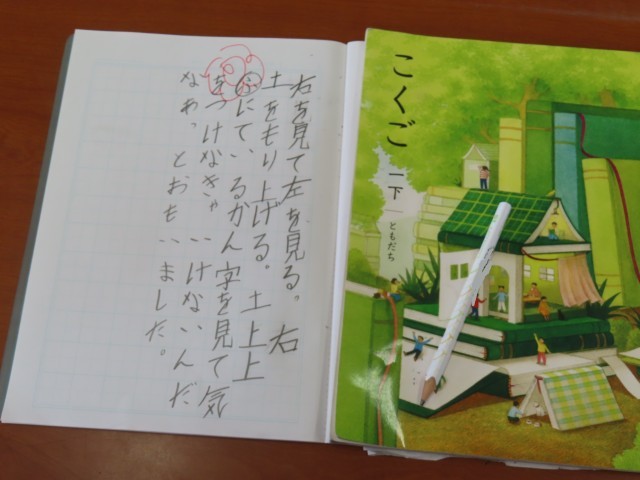 右を見て左を見る。右
土をもり上げる。土上上
にているかん字を見て気
をつけなきゃいけないんだ
なぁっとおもいました。
こくご
一下
ともだち